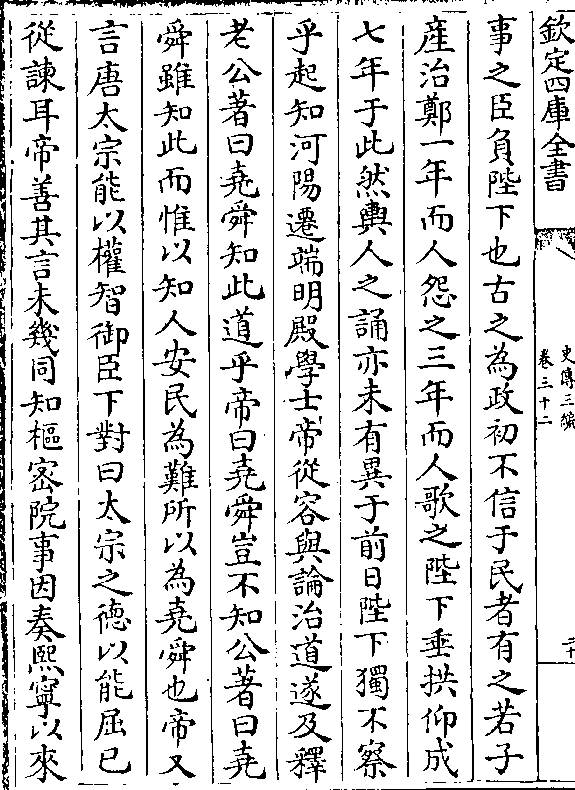 欽定四庫全書
史傳三編
卷三十二
二十
事之臣負陛下也古之為政初不信于民者有之若子
産治鄭一年而人怨之三年而人歌之陛下垂拱仰成
七年于此然輿人之誦亦未有異于前日陛下獨不察
乎起知河陽遷端明殿學士帝從容與論治道遂及釋
老公著曰堯舜知此道乎帝曰堯舜豈不知公著曰堯
舜雖知此而惟以知人安民為難所以為堯舜也帝又
言唐太宗能以權智御臣下對曰太宗之徳以能屈已
從諫耳帝善其言未幾同知樞密院事因奏熙寧以來